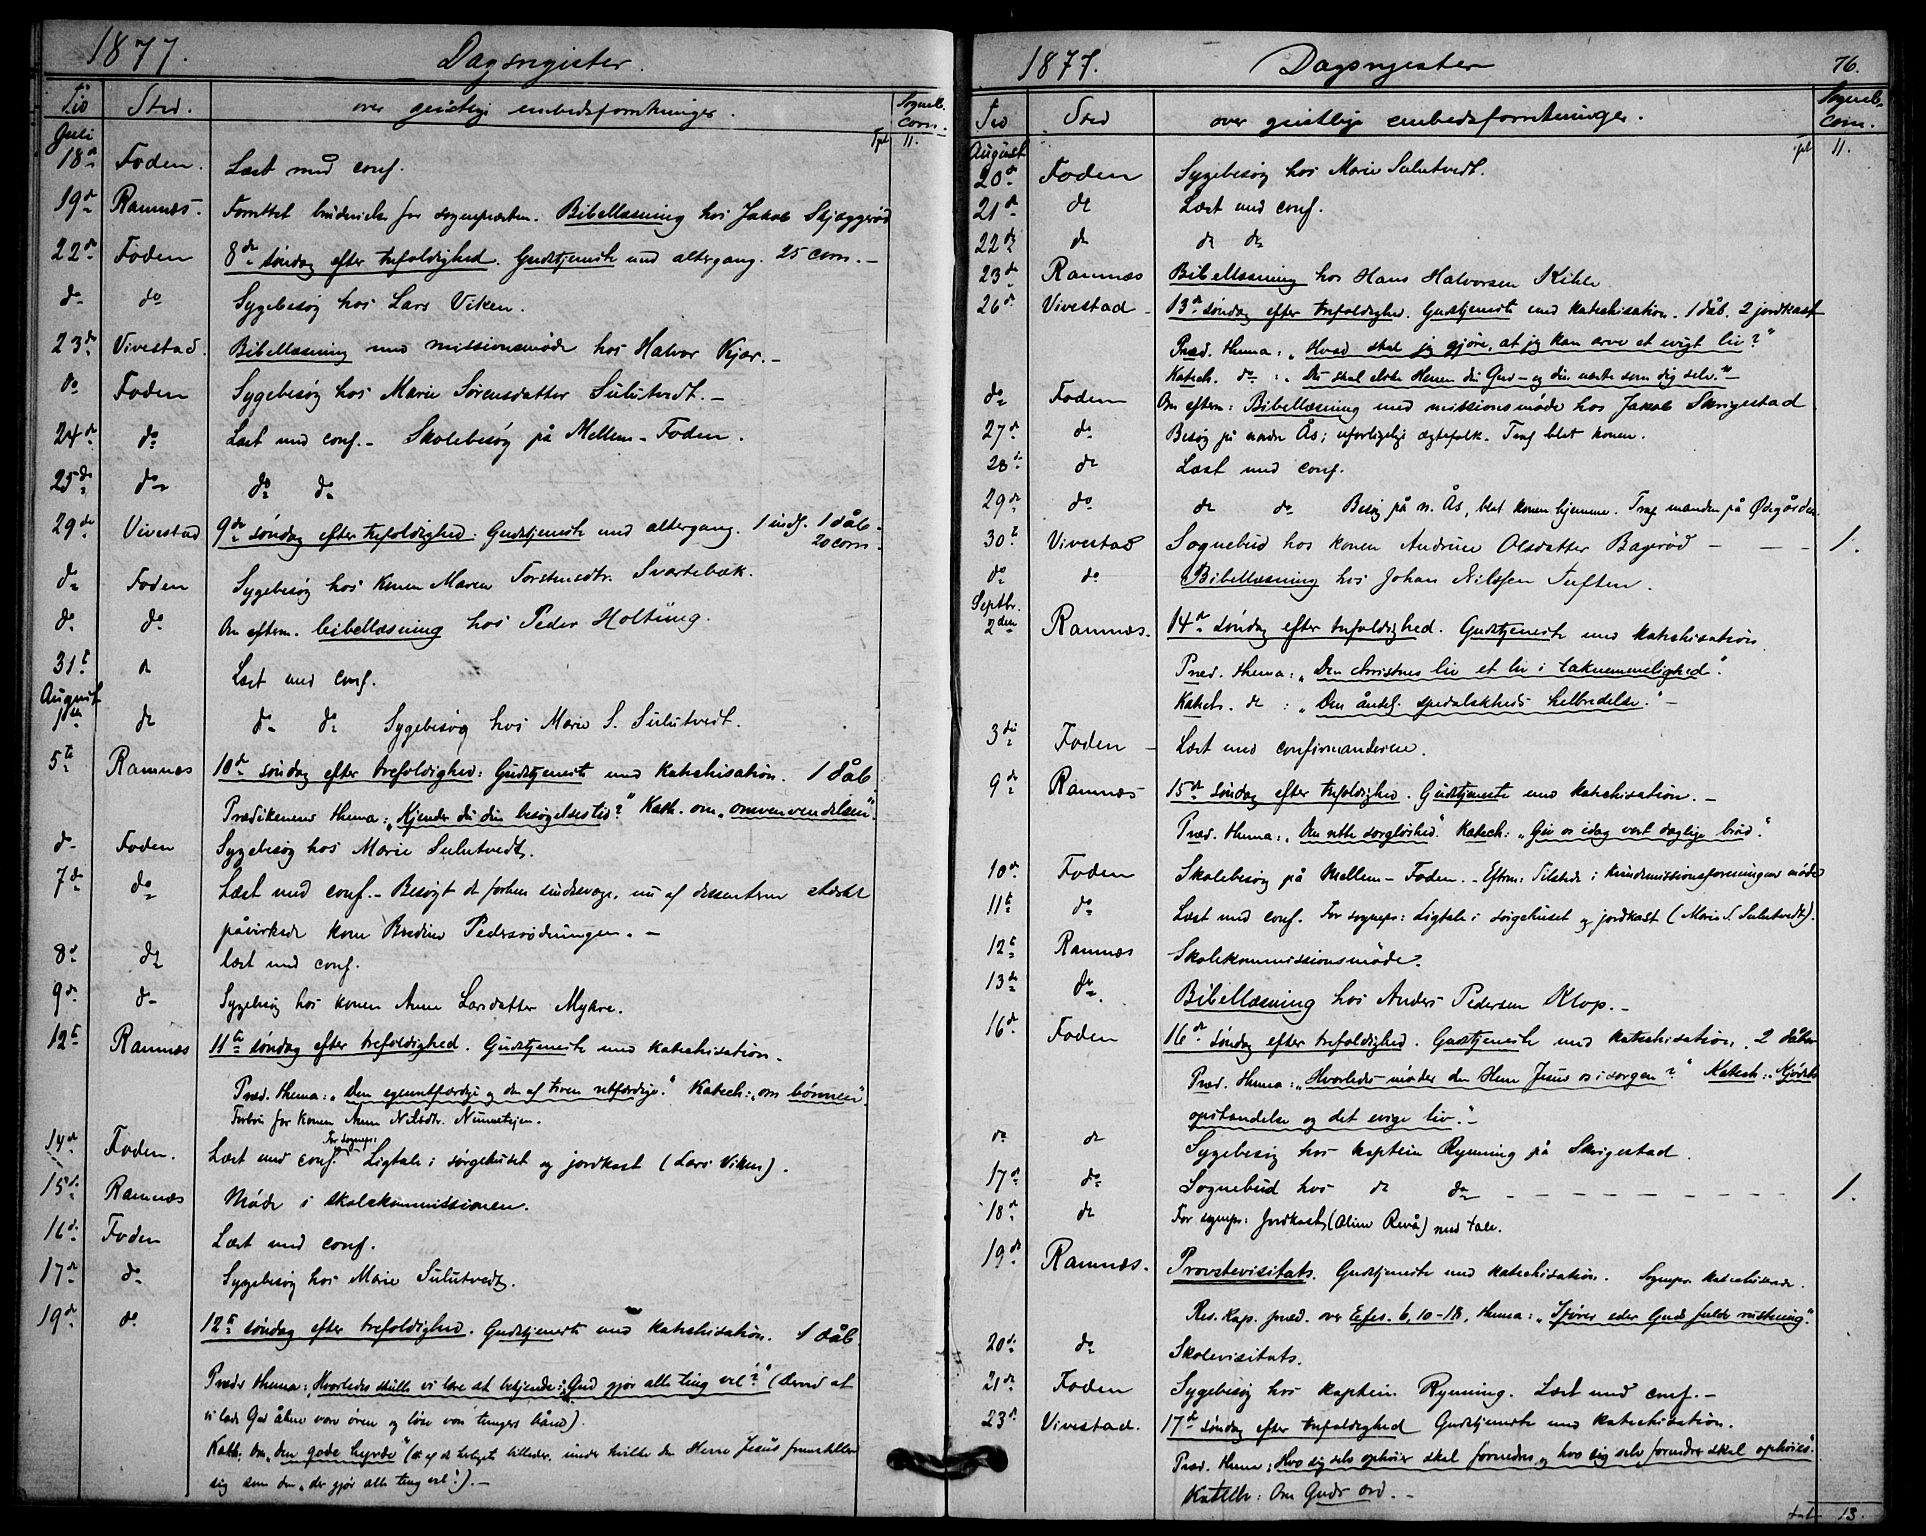 1877. Dagsregister.
Tid Sted. over geistlige embedsforretninger. Sogneb. com.
Juli Tpt 11.
18de Foden. Læst med conf.
19de Ramnæs. Forrettet brudevielse for sognepræsten. Bibellæsning hos Jakob Skjæggerød
22de Foden 8de søndag efter trefoldighed. Gudstjeneste med altergang. 25 com. -
do do Sygebesøg hos Lars Viken.
23de Vivestad. Bibellæsning med missionsmøde hos Halvor Kjær. -
do Foden Sygebesøg hos Marie Sørensdatter Sulutvedt. -
24de do Læst med conf. - Skolebesøg på Mellem-Foden.
25de do do do
29de Vivestad 9de søndag efter trefoldighed: Gudstjeneste med altergang. 1 indl. 1 dåb.
20 com.
do Foden Sygebesøg hos konen Maren Torstensdtr. Svartebæk.
do do Om eftern. bibellæsning hos Peder Holtung.
31te do Læst med conf.
August
1ste do do do Sygebesøg hos Marie S. Sulutvedt.
5te Ramnæs 10de søndag efter trefoldighed: Gudstjeneste med katechisation. 1 dåb
Prædikenens thema: "Kjender du din besøgelsestid?" Kath. om "omvenvendelsen".
do Foden Sygebesøg hos Marie Sulutvedt.
7de do Læst med conf. - Besøgt de forhen sindssvage, nu af dissenterne stærkt
påvirkede kone Bredine Pedersrødningen. -
8de do læst med conf.
9de do Sygebesøg hos konen Anne Larsdatter Myhre.
12te Ramnæs 11te søndag efter trefoldighed. Gudstjeneste med katechisation.
Præd. thema: "Den egenretfærdige og den af troen retfærdige." Katech: "om bønnen".
Forbøn for konen Anne Nilsdtr. Nunnestejen.
14de Foden. Læst med conf. For sognepr: Ligtale i sørgehuset og jordkast (Lars Viken).
15de Ramnæs Møde i skolekommissionen.
16de Foden Læst med conf.
17de do Sygebesøg hos Marie Sulutvedt.
19de do 12te søndag efter trefoldighed. Gudstjeneste med katechisation. 1 dåb.
Præd. thema: Hvorledes skulle vi lære at bekjende: "Gud gjør alle ting vel?" (derved at
vi lade Gud åbne vore øren og løse vor tunges bånd).
Kath: om "den gode hyrde" (et af de herligste billeder, under hvilke den Herre Jesus fremstiller
sig som den "der gjør alle ting vel"). -
1877. Dagsregister 76.
Tid Sted over geistlige embedsforretninger. Sogneb. com.
August tpt 11.
20de Foden Sygebesøg hos Marie Sulutvedt.
21de do Læst med conf.
22de do do do
23de Ramnæs Bibellæsning hos Hans Halvorsen Kihle
26de Vivestad - 13de søndag efter trefoldighed. Gudstjeneste med katechisation. 1 dåb. 2 jordkast
Præd. thema: "Hvad skal jeg gjøre, at jeg kan arve et evigt liv?"
Katech. do: "Du skal elske Herren din Gud - og din næste som dig selv." -
do Foden Om eftern: Bibellæsning med missionsmøde hos Jakob Skrigestad
27de do Besøg på nordre Ås; uforligelige ægtefolk. Traf blot konen.
28de do Læst med conf.
29de do do do Besøg på n. Ås, blot konen hjemme. Traf manden på Ødegården.
30te Vivestad Sognebud hos konen Andrine Olsdatter Bagerød - - - 1.
do do Bibellæsning hos Johan Nilssen Tuften.
Septbr.
2den Ramnæs. 14de søndag efter trefoldighed. Gudstjeneste med katechisation.
Præd. thema: "Den christnes liv et liv i taknemmelighed".
Katech. do: "Den åndel. spedalskheds helbredelse." -
3die Foden - Læst med confirmanderne.
9de Ramnæs 15de søndag efter trefoldighed. Gudstjeneste med katechisation. -
Præd. thema: "Den rette sorgløshed". Katech: "Giv os idag vort daglige brød."
10de Foden Skolebesøg på Mellem-Foden. - Eftern: Tilstede i kvindemissionsforeningens møde
11te do Læst med conf. For sognepr: Ligtale i sørgehuset og jordkast (Marie S. Sulutvedt).
12te Ramnæs Skolekommissionsmøde.
13de do. Bibellæsning hos Anders Pedersen Klop. -
16de Foden 16de søndag efter trefoldighed. Gudstjeneste med katechisation. 2 dåber
Præd. thema: "Hvorledes møder den Herre Jesus os i sorgen?" Katech: "Kjødets
opstandelse og det evige liv." -
do do Sygebesøg hos kaptein Rynning på Skrigestad.
17de do Sognebud hos do do - - - - - - - 1.
18de do For sognepr: Jordkast (Oline Revå) med tale.
19de Ramnæs. Provstevisitats. Gudstjeneste med katechisation. Sognepr. katechiserede.
Res. kap. præd. over Efes. 6, 10-18, thema: "Ifører eder Guds fulde rustning".
20de do Skolevisitats.
21de Foden Sygebesøg hos kaptein Rynning. Læst med conf. -
23de Vivestad. 17de søndag efter trefoldighed Gudstjeneste med katechisation.
Præd. thema: "Hvo sig selv ophøier skal fornedres, og hvo sig selv fornedrer skal ophøies".
Katech: Om Guds ord. -
tpt 13.